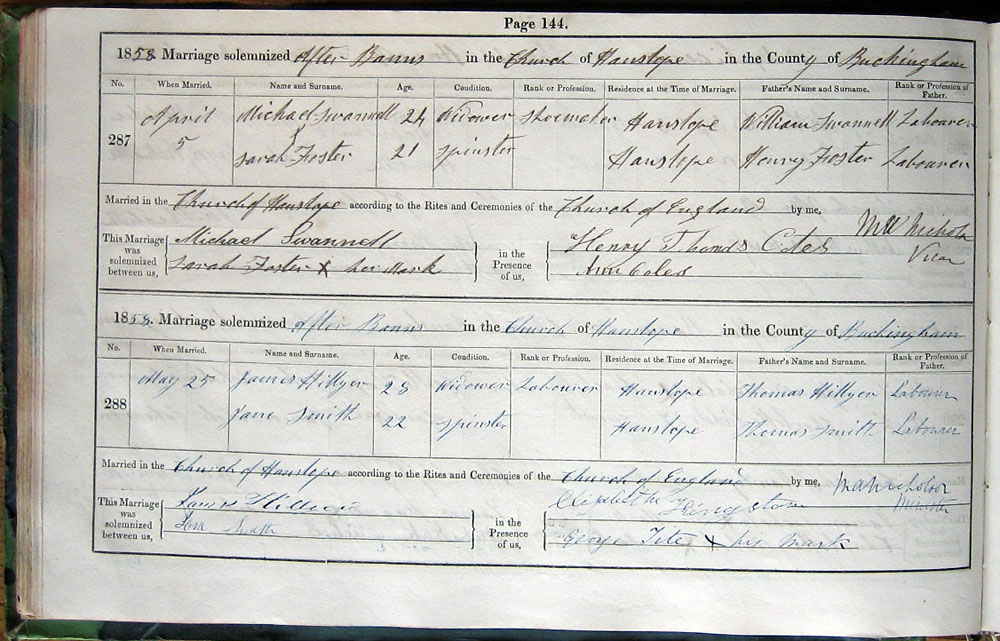 Page 144.
1858 Marriage solemnized After Banns in the Church of Hanslope in the County of Buckingham
No. When Married. Name and Surname. Age. Condition. Rank or Profession. Residence at the Time of Marriage. Father's Name and Surname. Rank or Profession of Father.
April Michael Swannell 24 Widower Shoemaker Hanslope William Swannell Labourer
287 5 Sarah Foster 21 Spinster Hanslope Henry Foster Labourer
Married in the Church of Hanslope according to the Rites and Ceremonies of the Church of England by me,
Vicar
This Marriage was solemnized between us, Michael Swannell in the Presence of us, Henry Thomas
Sarah Foster X her Mark Ann Coles
1858. Marriage solemnized After Banns in the Church of Hanslope in the County of Buckingham
No. When Married. Name and Surname. Age. Condition. Rank or Profession. Residence at the Time of Marriage. Father's Name and Surname. Rank or Profession of Father.
May 25 James Hillyer 28 Widower Labourer Hanslope Thomas Hillyer Labourer
288 Jane Smith 22 Spinster Hanslope Thomas Smith Labourer
Married in the Church of Hanslope according to the Rites and Ceremonies of the Church of England by me,
This Marriage was solemnized between us, James in the Presence of us, Elizabeth
Smith George Tite X his Mark